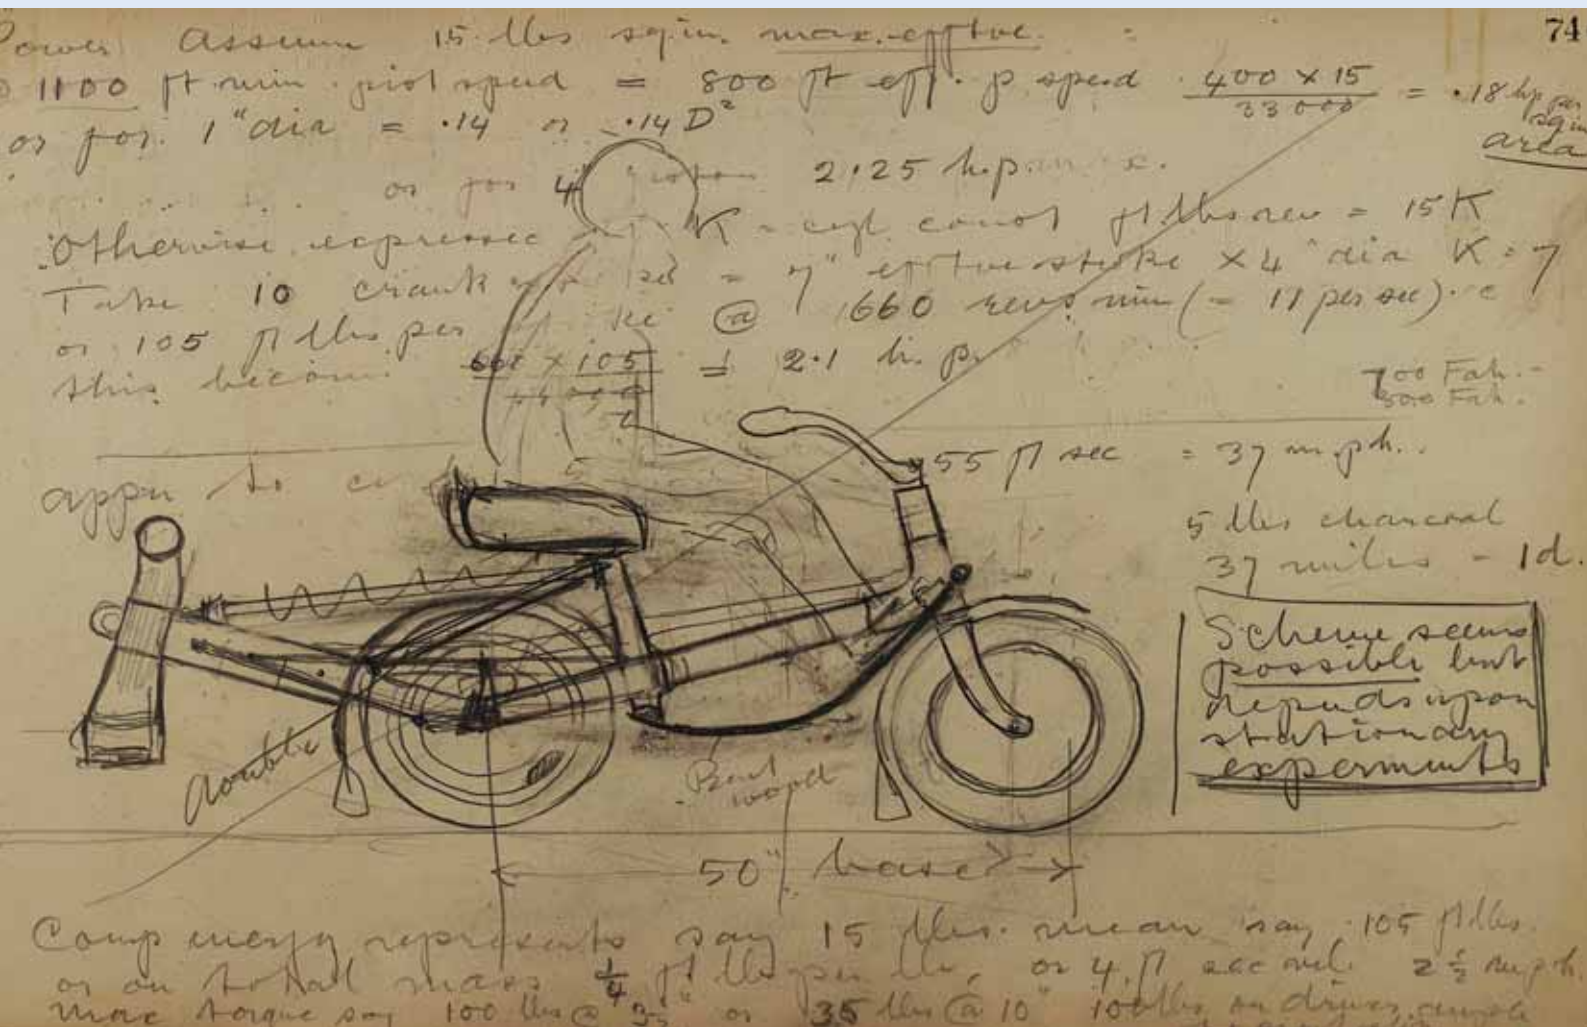 74
Power Assume 15 lbs sq in. max. efftve.
@ 1100 ft min. pist speed = 800 ft eff. p speed 400 × 15 / 33000 = .18 hp per sq in area
or for 1" dia = .14 or .14 D²
or for 4" 2.25 h.p.
Otherwise expressed K = cyl. ft lbs rev = 15 K
Take 10 crank = 7" efftve stroke × 4" dia K = 7
or 105 ft lbs per @ 660 revs min (= 11 per sec).
this becomes × 105 = 2.1 h.p.
700 Fah.
800 Fah.
55 ft sec = 37 m.p.h.
appr to
5 lbs charcoal
37 miles - 1d.
Scheme seems
possible but
depends upon
stationary
experiments
double
Bent
wood
50" base
Comp energy represents say 15 lbs. mean say 105 ft lbs.
or on total mass 1/4 ft lbs per lb, or 4 ft sec 2 1/2 mph.
max torque say 100 lbs @ or 35 lbs @ 10" 100 lbs on